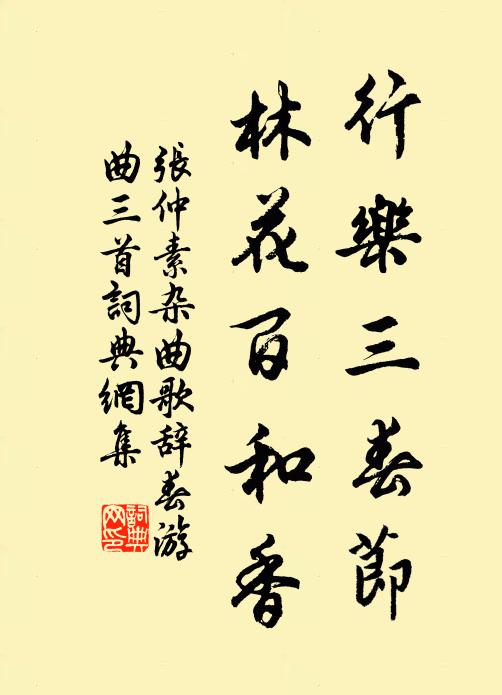 行樂三春節
林花百和香
張仲素杂曲歌辞春游
曲三首詞典網集
詞典
网印